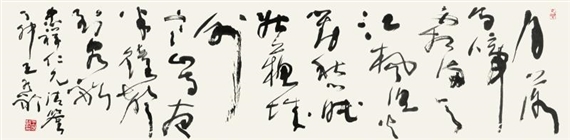 月落
烏啼
霜滿天
江楓漁火
對愁眠
姑蘇城
外
寒山寺夜
半鐘聲
到客船
忠祥仁兄